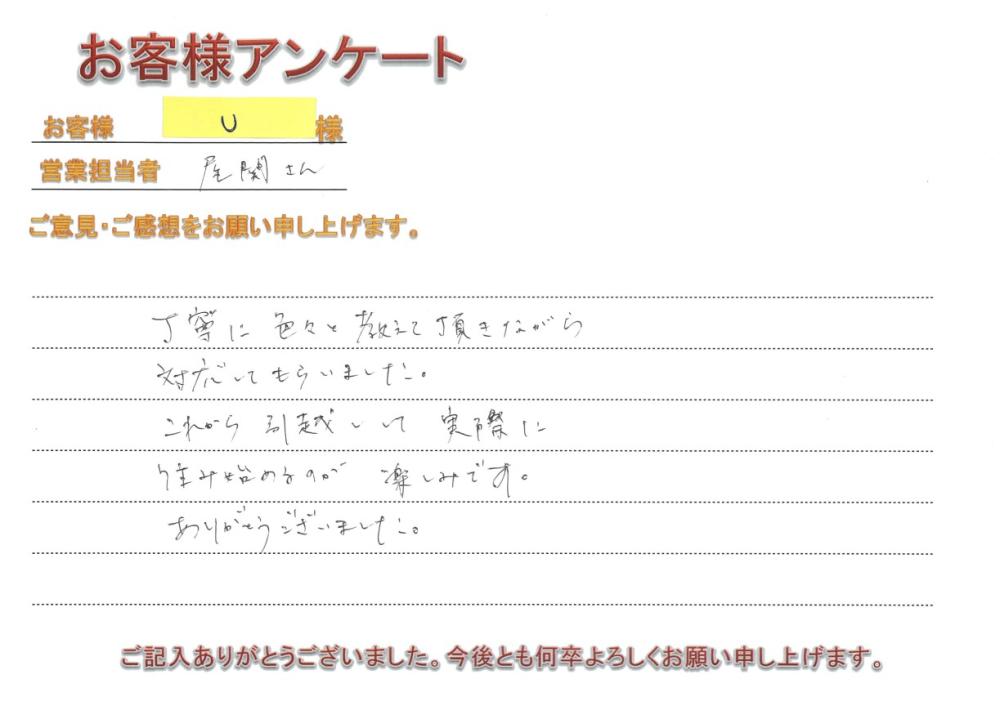 お客様アンケート
お客様 U 様
営業担当者 尾関さん
ご意見・ご感想をお願い申し上げます。
丁寧に色々と教えて頂きながら
対応してもらいました。
これから引越しして実際に
住み始めるのが楽しみです。
ありがとうございました。
ご記入ありがとうございました。今後とも何卒よろしくお願い申し上げます。